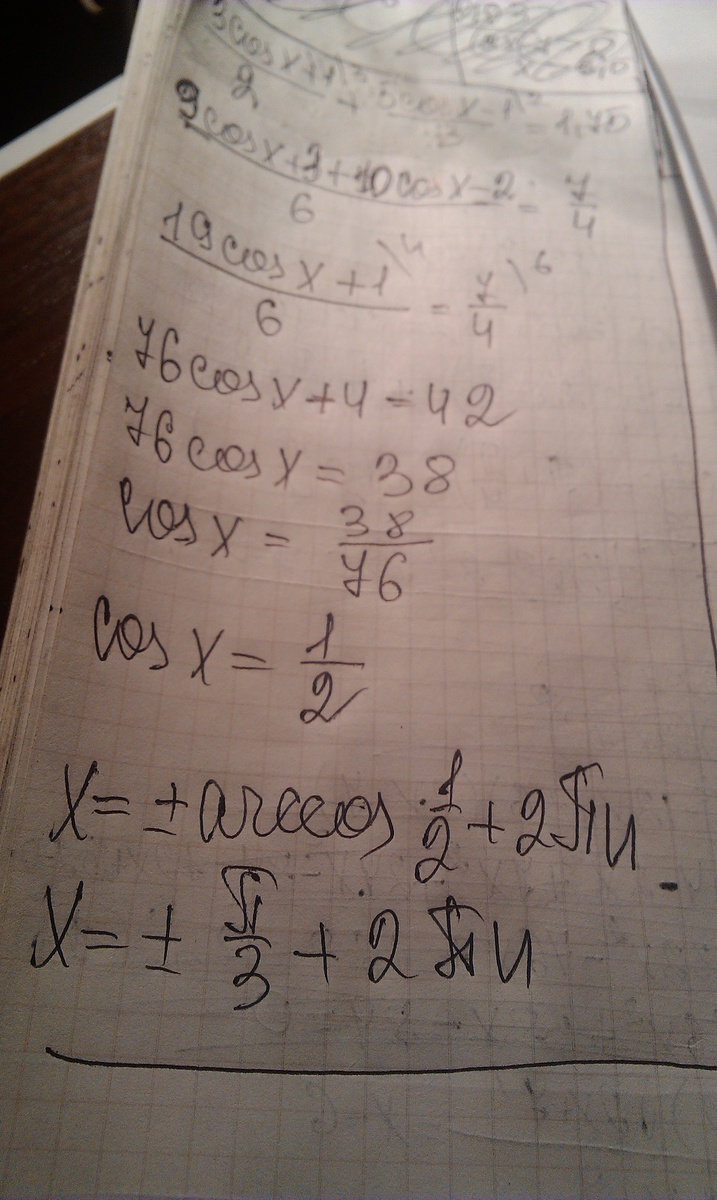 3cosx+1\3 / 2 + 5cosx-1\2 / 3 = 1,75
9cosx+3+10cosx-2 / 6 = 7/4
19cosx+1\4 / 6 = 7\6 / 4
76cosx+4=42
76cosx=38
cosx= 38/76
cosx= 1/2
x=±arccos 1/2+2πn
x=± π/3 + 2πn